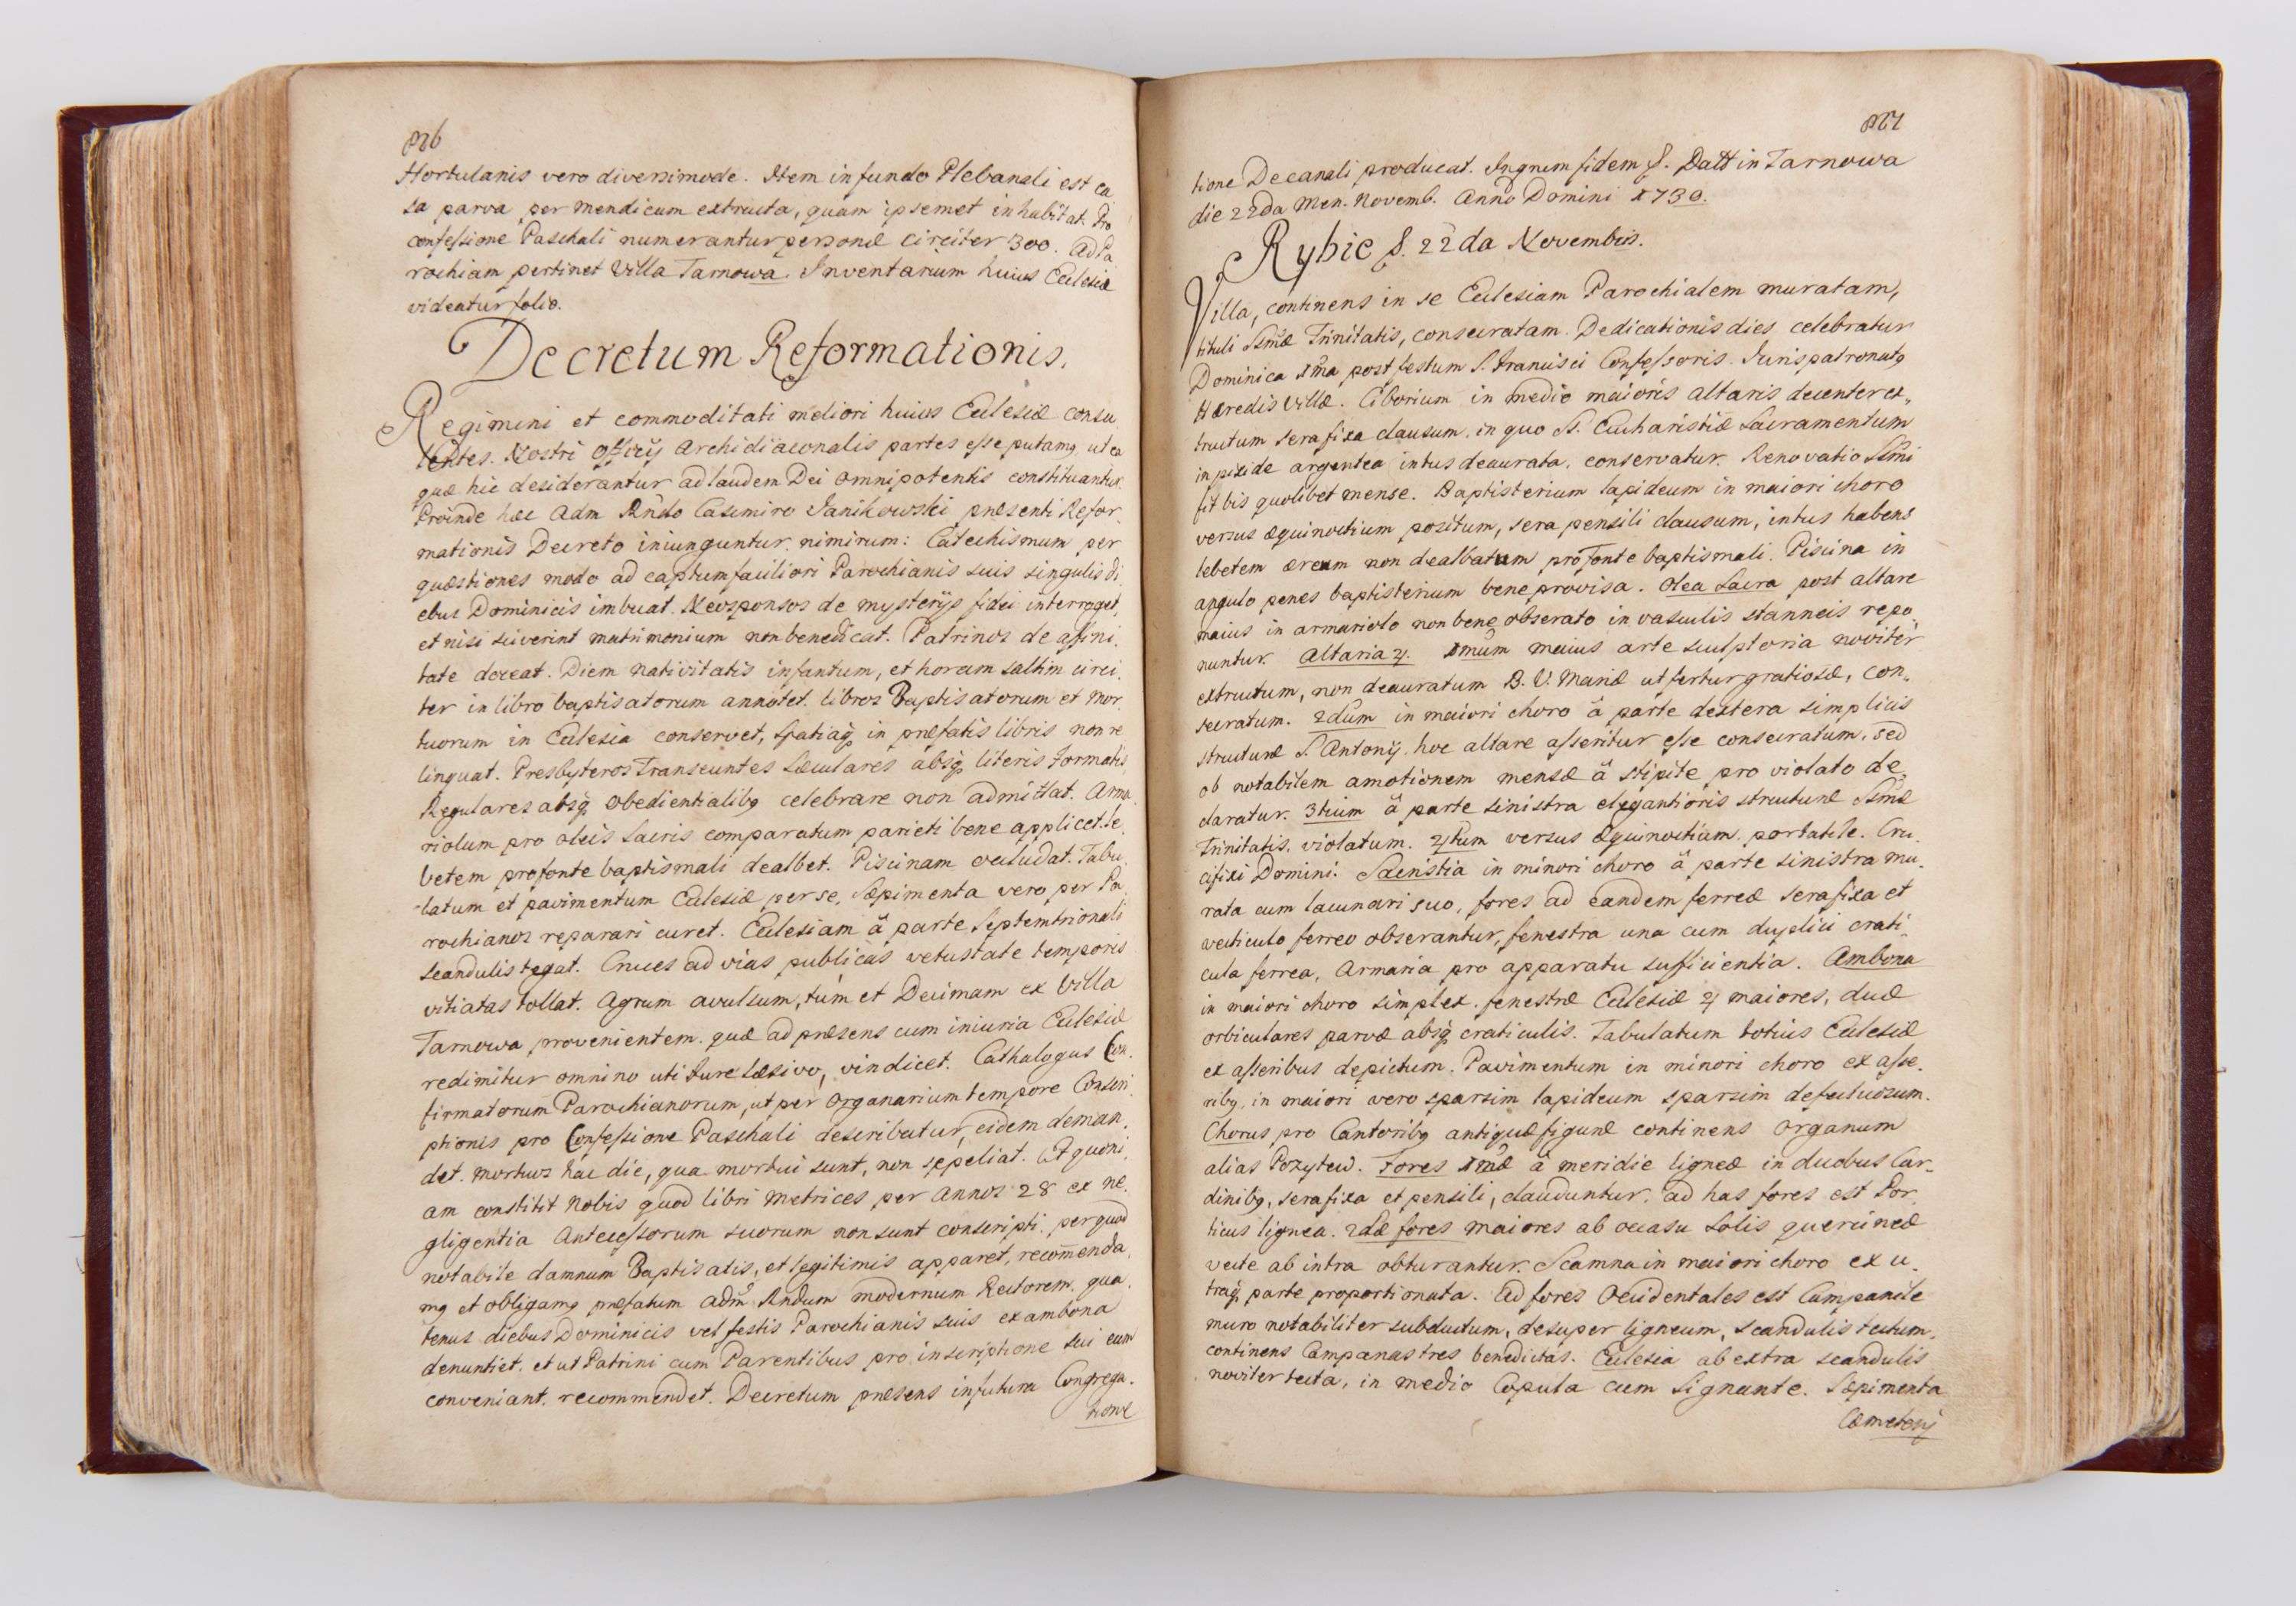 Hortulanis vero diversimode. Item in fundo Plebanali est ca
sa parva per mendicum extructa, quam ipsemet inhabitat. Pro
confessione Paschali numerantur personæ circiter 300. Ad Pa
rochiam pertinet Villa Tarnowa. Inventarium huius Ecclesiæ
videatur folio.
Decretum Reformationis.
Regimini et commoditati meliori huius Ecclesiæ consu
lentes. Nostri Officij Archidiaconalis partes esse putamq ut ea
quæ hic desiderantur ad laudem Dei omnipotentis constituantur.
Proinde hæc Adm Rndo Casimiro Janikowski præsenti Refor
mationis Decreto iniunguntur. nimirum: Catechismum per
quæstiones modo ad captum faciliori Parochianis suis singulis di
ebus Dominicis imbuat. Neosponsos de mysterijs fidei interroget,
et nisi sciverint matrimonium non benedicat. Patrinos de affini
tate doceat. Diem nativitatis infantum, et horam saltim circi
ter in libro baptisatorum annotet. libros Baptisatorum et Mor
tuorum in Ecclesia conservet, spatiaq in præfatis libris non re
linquat. Presbyteros Transeuntes Sæculares absq literis Formatis,
Regulares absq obedientialibq celebrare non admittat. Arma
riolum pro oleis Sacris comparatum parieti bene applicet. le
betem pro fonte baptismali dealbet. Piscinam occludat. Tabu
latum et pavimentum Ecclesiæ per se, Sæpimenta vero per Pa
rochianos reparari curet. Ecclesiam à parte Septemtrionali
scandulis tegat. Cruces ad vias publicas vetustate temporis
vitiatas tollat. Agrum avulsum, tum et Decimam ex Villa
Tarnowa provenientem. quæ ad præsens cum iniuria Ecclesiæ
redimitur omnino uti Jure læsivo, vindicet. Cathalogus Con
firmatorum Parochianorum, ut per Organarium tempore Conscri
ptionis pro Confessione Paschali describatur, eidem deman
det. Mortuos hac die, qua mortui sunt, non sepeliat. Et quoni
am constitit Nobis quod libri Metrices per Annos 28 ex ne
gligentia Antecessorum suorum non sunt conscripti. per quod
notabile damnum Baptisatis, et legitimis apparet, recom̄enda
mq et obligamq præfatum Adm Rndum modernum Rectorem. qua
tenus diebus Dominicis vel festis Parochianis suis ex ambona
denuntiet. et ut Patrini cum Parentibus pro inscriptione sui eum
conveniant. recommendet. Decretum præsens in futura Congrega
tione
tione Decanali producat. Inqrum fidem &. Datt in Tarnowa
die 22da Men. Novemb. Anno Domini 1730.
Rybie &. 22da Novembris.
Villa, continens in se Ecclesiam Parochialem muratam,
tituli SSmæ Trinitatis, consecratam. Dedicationis dies celebratur
Dominica 1ma post festum S. Francisci Confessoris. Jurispatronatq
Hæredis Villæ. Ciborium in medio maioris altaris decenter ex
tructum sera fixa clausum. in quo SS. Eucharistiæ Sacramentum
in pixide argentea intus deaurata, conservatur. Renovatio SSmi
fit bis quolibet mense. Baptisterium lapideum in maiori choro
versus æquinoctium positum, sera pensili clausum, intus habens
lebetem æreum non dealbatum pro Fonte baptismali. Piscina in
angulo penes baptisterium bene provisa. Olea Sacra post altare
maius in armariolo non bene obserato in vasculis stanneis repo
nuntur. Altaria 4. 1mum maius arte sculptoria noviter
extructum, non deauratum B. V. Mariæ ut fertur gratiosæ, con
secratum. 2dum in maiori choro à parte dextera simplicis
structuræ S. Antonij. hoc altare asseritur esse consecratum, sed
ob notabilem amotionem mensæ à stipite pro violato de
claratur. 3tium à parte sinistra elegantioris structuræ SSmæ
Trinitatis. violatum. 4tum versus æquinoctium. portatile. Cru
cifixi Domini. Sacristia in minori choro à parte sinistra mu
rata cum lacunari suo, fores ad eandem ferreæ sera fixa et
vecticulo ferreo obserantur, fenestra una cum duplici crati
cula ferrea, Armaria pro apparatu sufficientia. Ambona
in maiori choro simplex. fenestræ Ecclesiæ 4 maiores, duæ
orbiculares parvæ absq craticulis. Tabulatum totius Ecclesiæ
ex asseribus depictum. Pavimentum in minori choro ex asse
ribq, in maiori vero sparsim lapideum sparsim defectuosum.
Chorus pro Cantoribq antiquæ figuræ continens Organum
alias Pozytew. Fores 1mæ à meridie ligneæ in duobus Car
dinibq, sera fixa et pensili, clauduntur. ad has fores est Por
ticus lignea. 2dæ fores maiores ab occasu Solis quercineæ
vecte ab intra obturantur. Scamna in maiori choro ex u
traq parte proportionata. Ad fores Occidentales est Campanile
muro notabiliter subductum, desuper ligneum, scandulis tectum.
continens Campanas tres benedictas. Ecclesia ab extra scandulis
noviter tecta, in medio Copula cum Signante. Sæpimenta
Cæmeterij